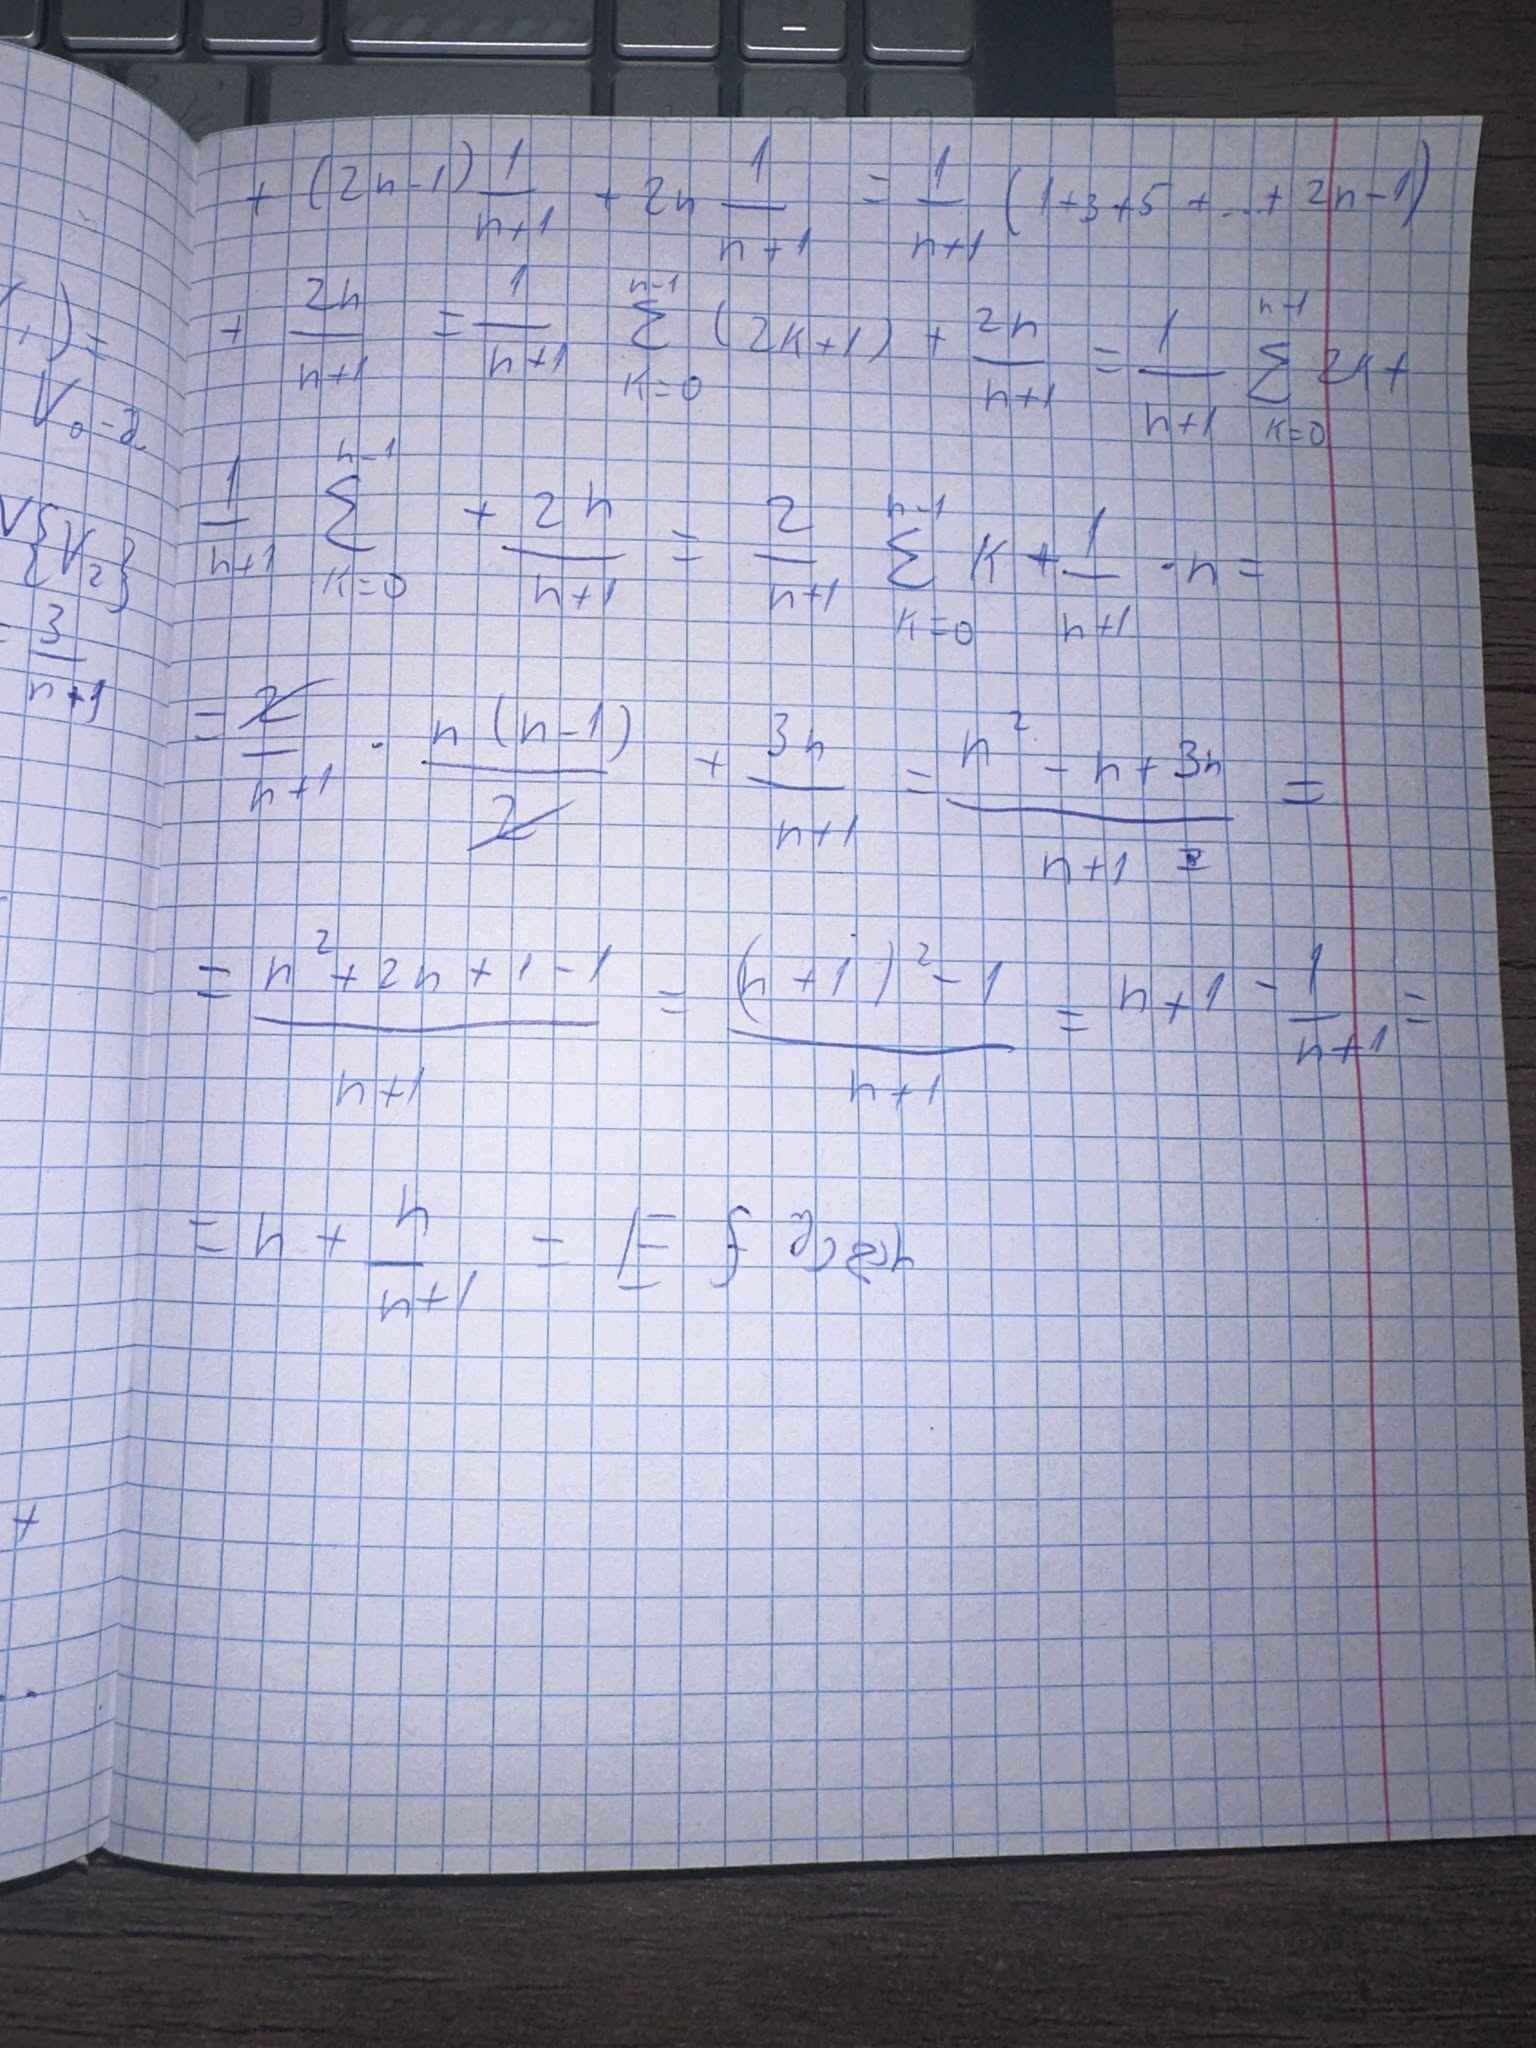 + (2n-1) 1/(n+1) + 2n 1/(n+1) = 1/(n+1) (1+3+5+...+2n-1)
+ 2n/(n+1) = 1/(n+1) Σ_{k=0}^{n-1} (2k+1) + 2n/(n+1) = 1/(n+1) Σ_{k=0}^{n-1} 2k+
1/(n+1) Σ_{k=0}^{n-1} + 2n/(n+1) = 2/(n+1) Σ_{k=0}^{n-1} k + 1/(n+1) · n =
= 2/(n+1) · n(n-1)/2 + 3n/(n+1) = (n² - n + 3n)/(n+1) =
= (n² + 2n + 1 - 1)/(n+1) = ((n+1)² - 1)/(n+1) = n+1 - 1/(n+1) =
= n + n/(n+1) = E f
) =
V₀-2
{V₂}
3/(n+1)
+